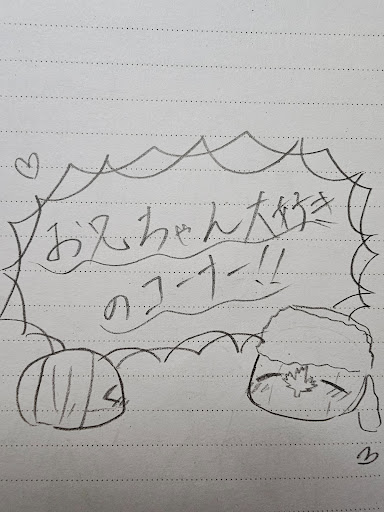 お兄ちゃん大好き
のコーナー!!